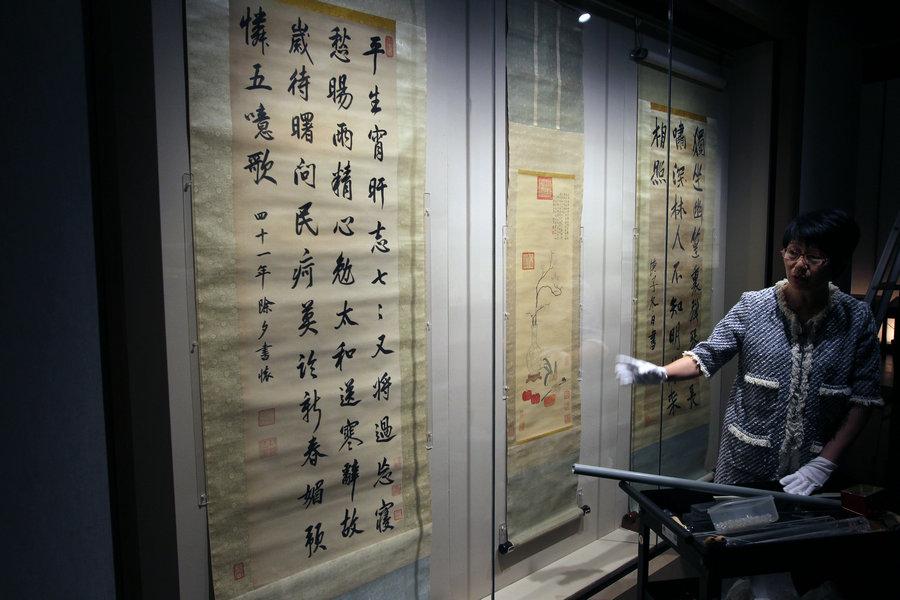 平生宵旰志七〻又將過忘寢
愁暘雨精心勉太和送寒辭故
歲待曙問民疴莫論新春媚預
憐五噫歌
四十一年除夕書懷
獨坐幽篁裏彈琴復長
嘯深林人不知明月來
相照
日書